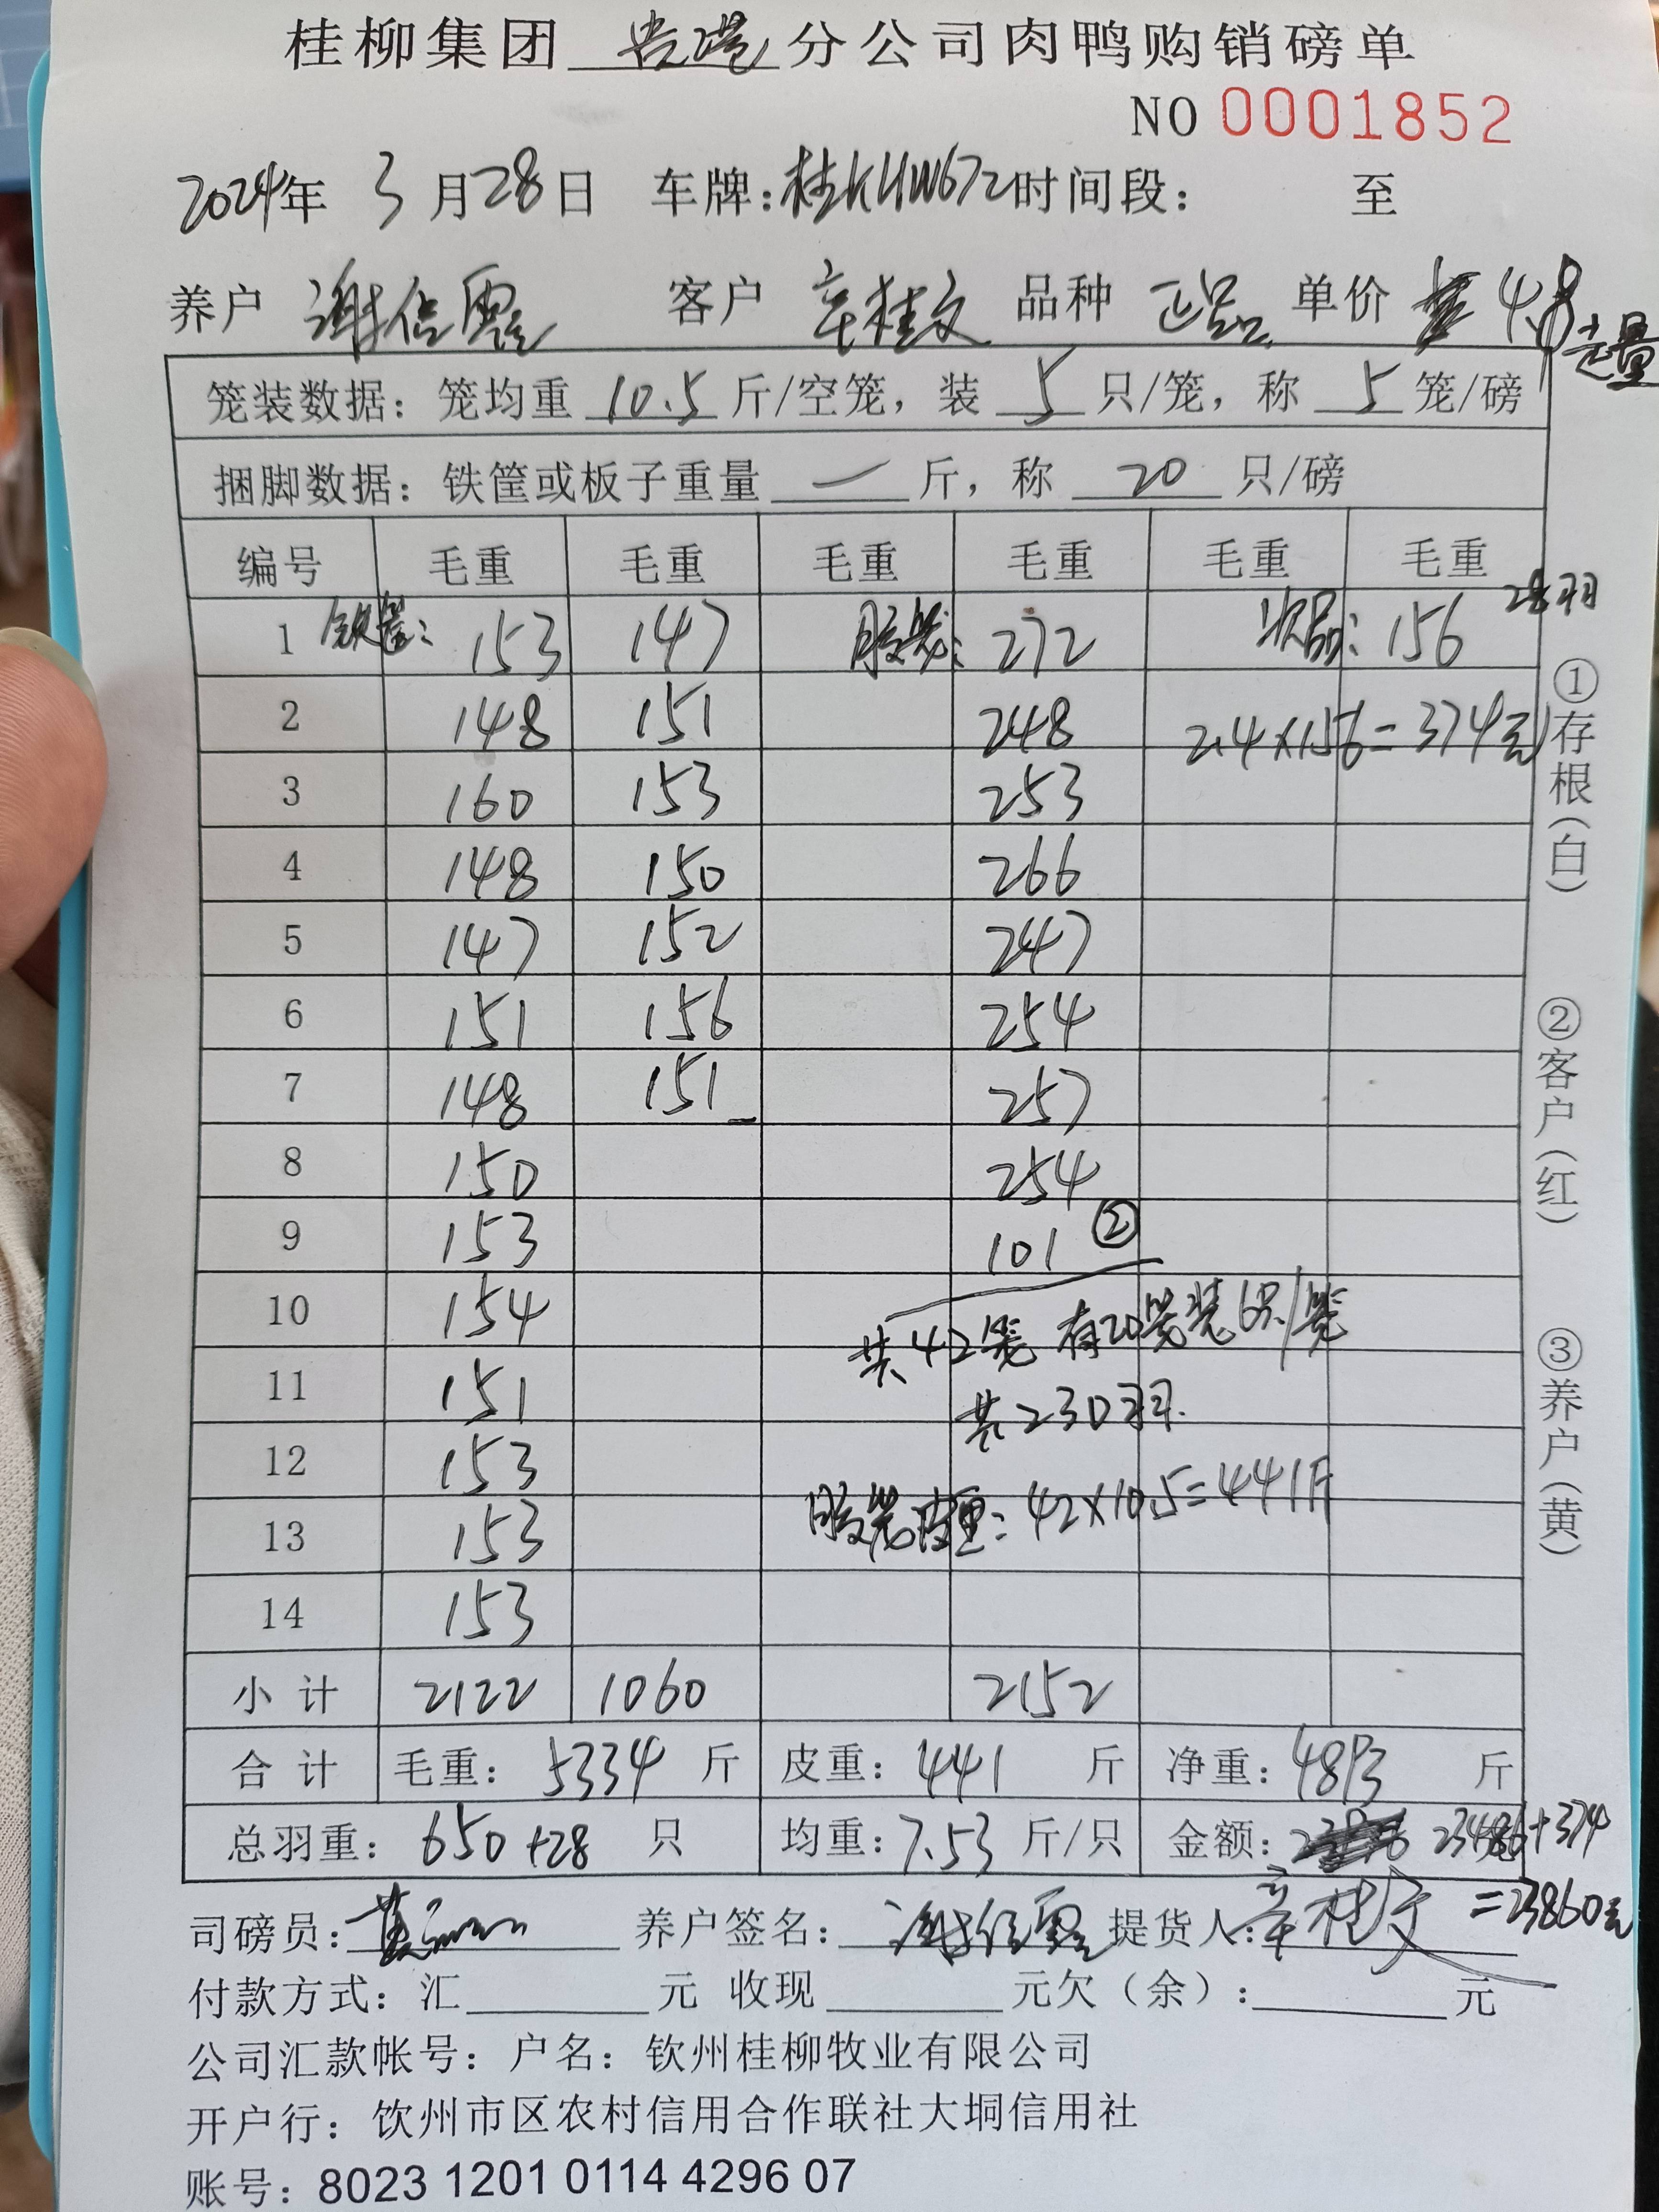 桂柳集团 贵港 分公司肉鸭购销磅单
NO 0001852
2024年 3月28日 车牌:桂KHW672时间段: 至
养户 谢信霞 客户 辛桂文 品种 正品 单价 4.8
笼装数据: 笼均重 10.5 斤/空笼, 装 5 只/笼, 称 5 笼/磅
捆脚数据: 铁筐或板子重量 — 斤, 称 20 只/磅
编号 毛重 毛重 毛重 毛重 毛重 毛重
28羽
1 铁筐: 153 147 胶笼: 272 次品: 156
2 148 151 248 2.4×156=374元
3 160 153 253
4 148 150 266
5 147 152 247
6 151 156 254
7 148 151 257
8 150 254
9 153 101 ②
10 154 共42笼 有20笼装6只/笼
11 151 共230羽.
12 153
13 153 胶笼皮重: 42×10.5=441斤
14 153
小计 2122 1060 2152
合计 毛重: 5334 斤 皮重: 441 斤 净重: 4893 斤
总羽重: 650+28 只 均重: 7.53 斤/只 金额: 23486+374
=23860元
司磅员: 养户签名: 谢信霞 提货人: 辛桂文
付款方式: 汇 元 收现 元欠(余): 元
公司汇款帐号: 户名: 钦州桂柳牧业有限公司
开户行: 钦州市区农村信用合作联社大垌信用社
账号: 8023 1201 0114 4296 07
①存根(白)
②客户(红)
③养户(黄)